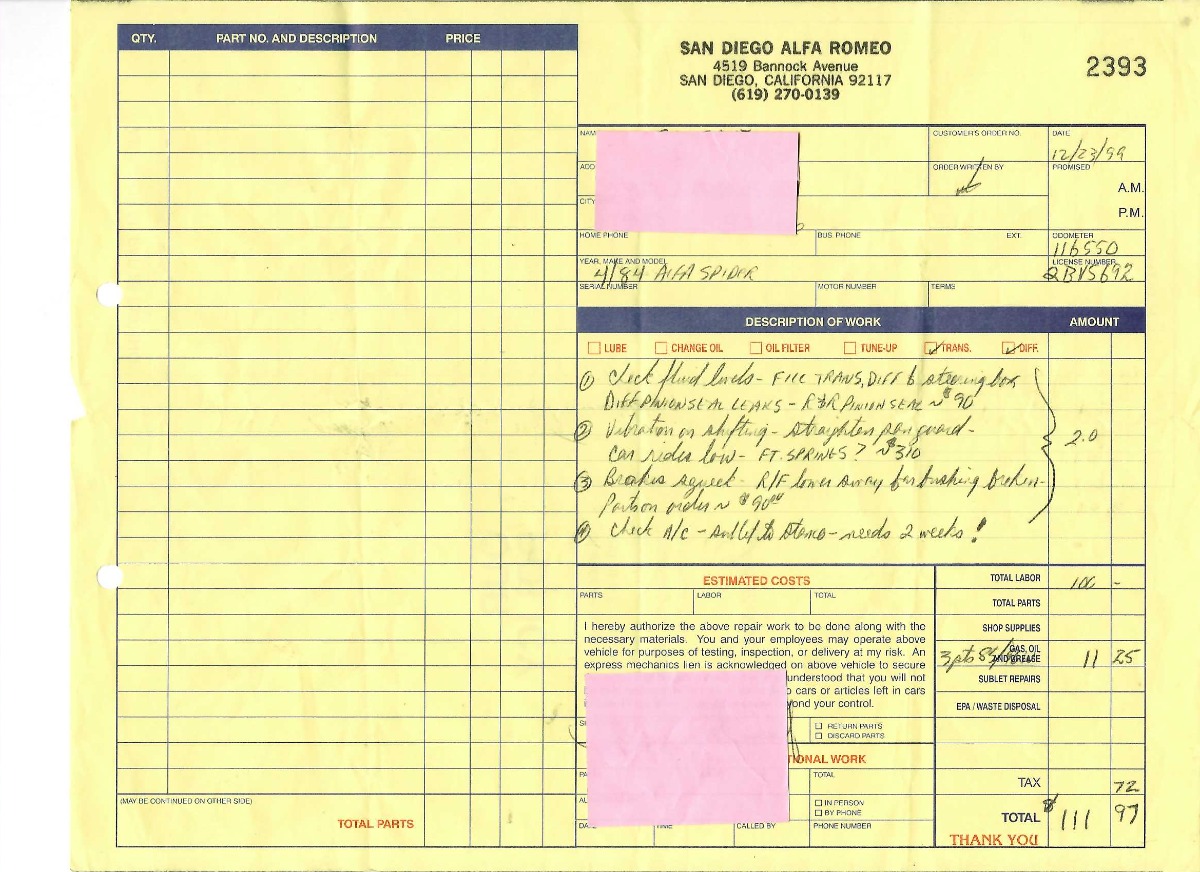 QTY. PART NO. AND DESCRIPTION PRICE
SAN DIEGO ALFA ROMEO
4519 Bannock Avenue
SAN DIEGO, CALIFORNIA 92117
(619) 270-0139
2393
CUSTOMER'S ORDER NO.
DATE
12/23/99
ORDER WRITTEN BY
PROMISED
A.M.
P.M.
CITY
HOME PHONE
BUS. PHONE
EXT.
ODOMETER
116550
YEAR, MAKE AND MODEL
4/84 ALFA SPIDER
LICENSE NUMBER
2BVS692
SERIAL NUMBER
MOTOR NUMBER
TERMS
DESCRIPTION OF WORK AMOUNT
LUBE CHANGE OIL OIL FILTER TUNE-UP TRANS. DIFF.
① Check fluid levels - FILL TRANS, DIFF & steering box
DIFF PINION SEAL LEAKS - R&R PINION SEAL ~ $90
② Vibration on shifting - straighten pan guard -
car rides low - FT. SPRINGS? ~$310
2.0
③ Brakes squeek - R/F lower sway bar bushing broken -
Parts on order ~ $90.00
④ Check A/C - to - needs 2 weeks!
ESTIMATED COSTS
PARTS LABOR TOTAL
I hereby authorize the above repair work to be done along with the
necessary materials. You and your employees may operate above
vehicle for purposes of testing, inspection, or delivery at my risk. An
express mechanics lien is acknowledged on above vehicle to secure
understood that you will not
cars or articles left in cars
yond your control.
RETURN PARTS
DISCARD PARTS
TIONAL WORK
TOTAL
IN PERSON
BY PHONE
CALLED BY
PHONE NUMBER
TOTAL LABOR 100 -
TOTAL PARTS
SHOP SUPPLIES
3 pts
GAS, OIL
AND GREASE 11 25
SUBLET REPAIRS
EPA / WASTE DISPOSAL
TAX 72
TOTAL $111 97
THANK YOU
(MAY BE CONTINUED ON OTHER SIDE)
TOTAL PARTS